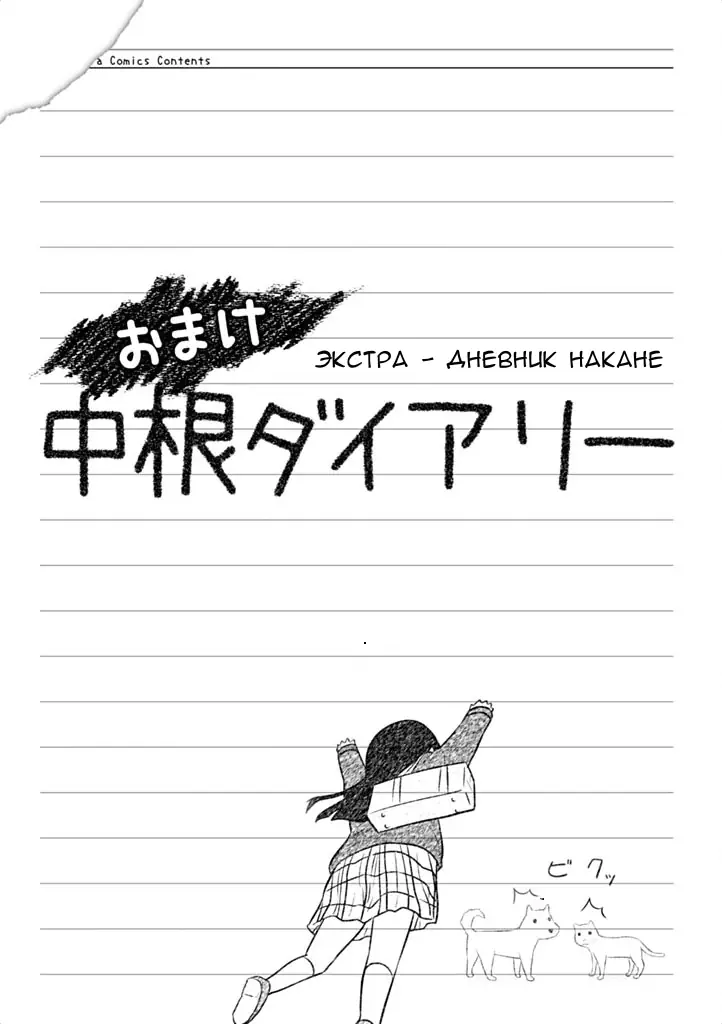 a Comics Contents
おまけ
ЭКСТРА - ДНЕВНИК НАКАНЕ
中根ダイアリー
ビクッ